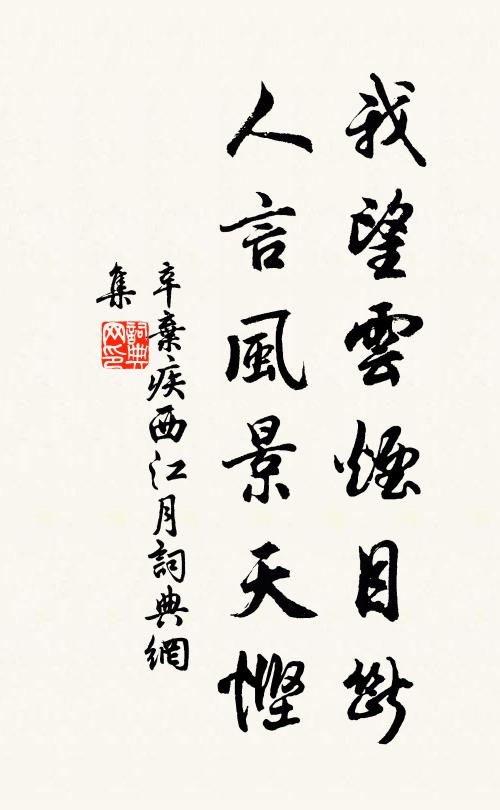 我望雲煙目斷
人言風景天慳
辛棄疾西江月詞典網
集
詞典网印